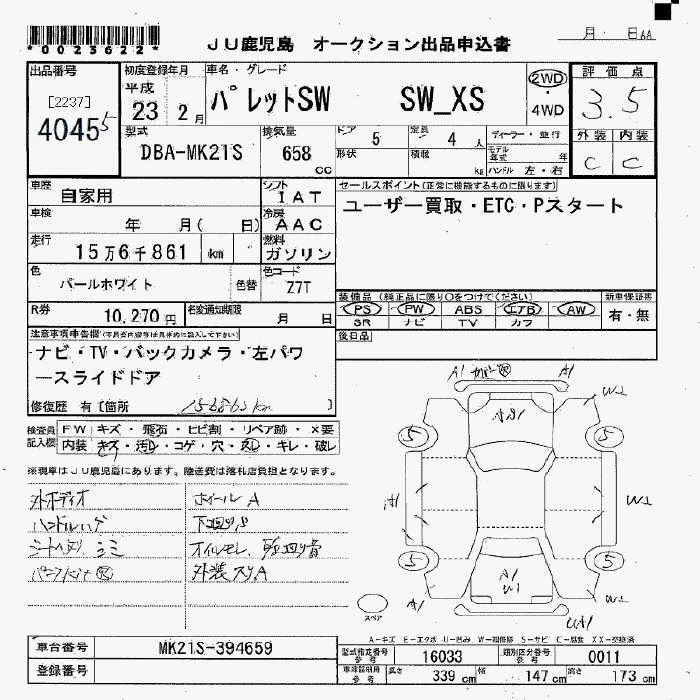 *0023622*
JU鹿児島 オークション出品申込書
月 日
出品番号
[2237]
4045 5
初度登録年月
平成
23 2月
車名・グレード
パレットSW SW_XS
2WD
・
4WD
評価点
3.5
外装 内装
C C
型式
DBA-MK21S
排気量
658
cc
ドア 5
定員 4 人
形状
積載 kg
ディーラー・並行
モデル年式 年
ハンドル 左・右
車歴
自家用
シフト
IAT
車検
年 月( 日)
冷房
AAC
走行
15万6千861 km
燃料
ガソリン
色
パールホワイト
色替
色コード
Z7T
R券
10,270円
名変通知期限
月 日
セールスポイント(正常に機能するものに限ります)
ユーザー買取・ETC・Pスタート
装備品(純正品に限り○をつけてください)
PS PW ABS エアB AW
SR ナビ TV カワ
新車保証書
有・無
後日品
注意事項申告欄
ナビ・TV・バックカメラ・左パワ
ースライドドア
修復歴 有〔箇所 〕
検査員
記入欄
FW キズ・飛石・ヒビ割・リペア跡・×要
内装 キズ・汚れ・コゲ・穴・スレ・キレ・破レ
※現車はJU鹿児島にあります。陸送費は落札店負担となります。
外オーディオ
ホイールA
シートヘタリ シミ
オイルモレ
外装スリA
A1
A1
W2
5
5
A1
W2
5
5
A1
W1
A1
W2
スペア
A-キズ E-エクボ U-凹み W-補修跡 S-サビ C-腐食 XX-交換済
車台番号
MK21S-394659
登録番号
型式指定番号
参考
16033
類別区分番号
参考
0011
車検証記用
参考
長さ 339 cm
幅 147 cm
高さ 173 cm